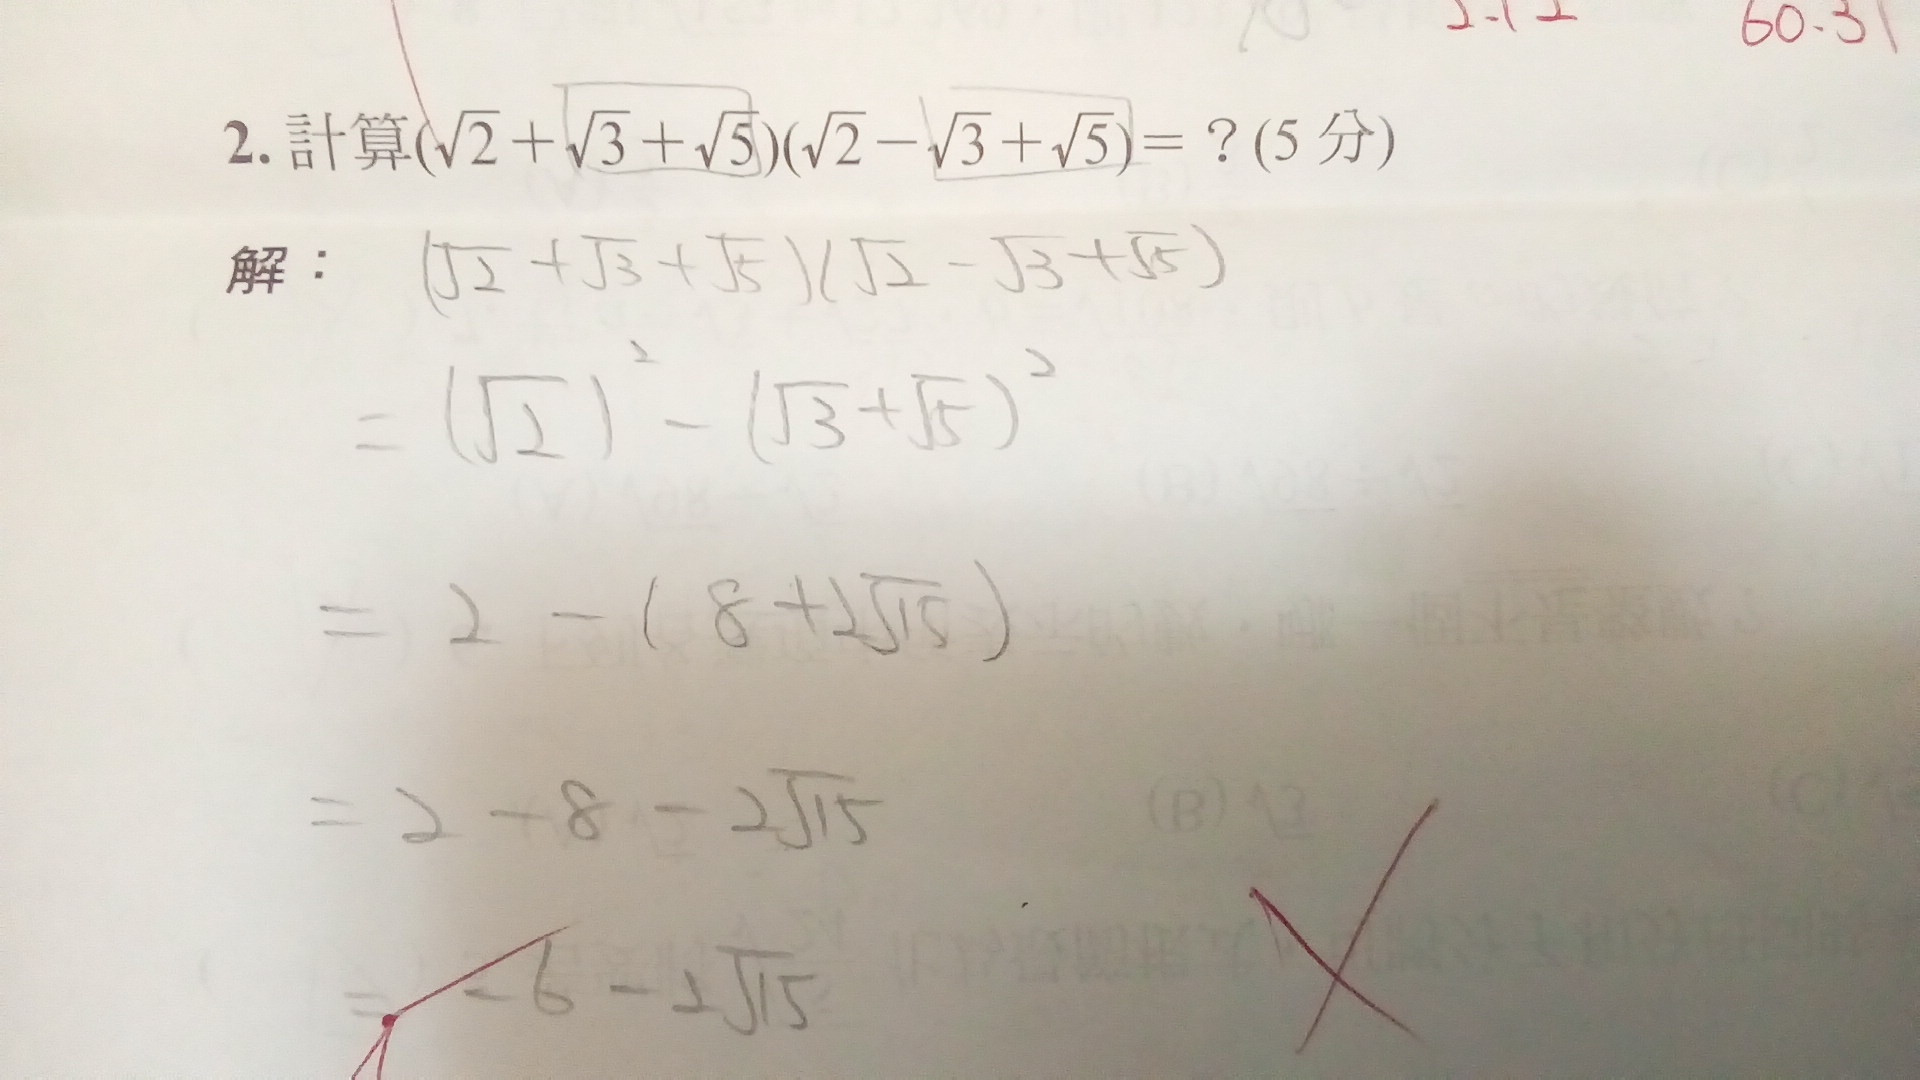 60.31
2. 計算(√2+√3+√5)(√2−√3+√5)=？(5 分)
解： (√2+√3+√5)(√2-√3+√5)
= (√2)² - (√3+√5)²
= 2 - (8+2√15)
= 2-8-2√15
= -6-2√15